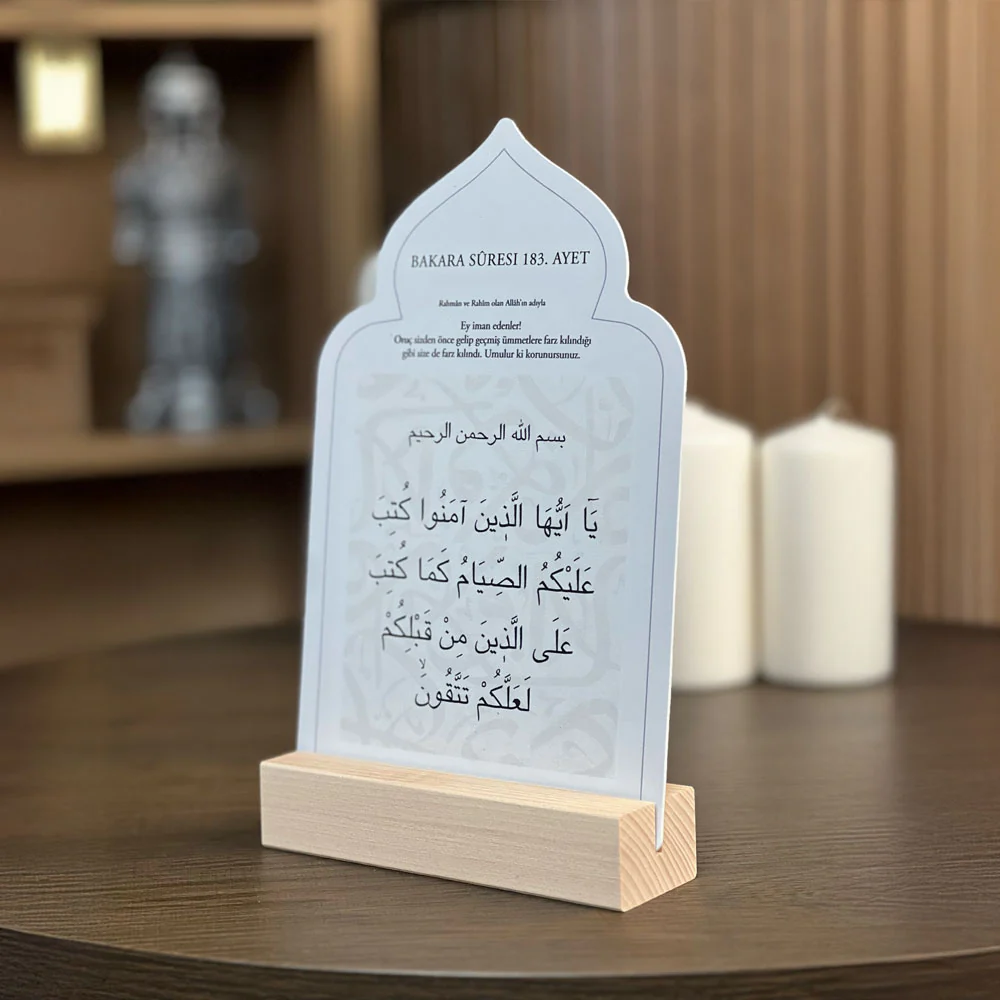 BAKARA SÛRESI 183. AYET
Rahmân ve Rahîm olan Allâh'ın adıyla
Ey iman edenler!
Oruç sizden önce gelip geçmiş ümmetlere farz kılındığı
gibi size de farz kılındı. Umulur ki korunursunuz.
بسم الله الرحمن الرحيم
يَٓا اَيُّهَا الَّذ۪ينَ آمَنُوا كُتِبَ
عَلَيْكُمُ الصِّيَامُ كَمَا كُتِبَ
عَلَى الَّذ۪ينَ مِنْ قَبْلِكُمْ
لَعَلَّكُمْ تَتَّقُونَۙ